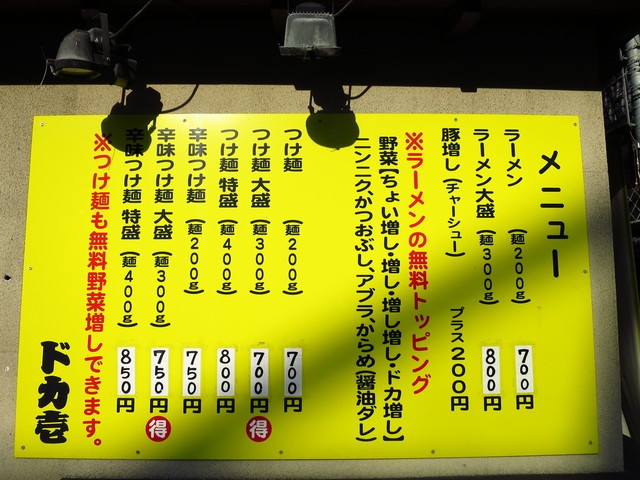 メニュー
ラーメン (麺200g) 700円
ラーメン大盛 (麺300g) 800円
豚増し (チャーシュー) プラス200円
※ラーメンの無料トッピング
野菜【ちょい増し・増し・増し増し・ドカ増し】
ニンニク、かつおぶし、アブラ、からめ(醤油ダレ)
つけ麺 (麺200g) 700円
つけ麺 大盛 (麺300g) 700円 得
つけ麺 特盛 (麺400g) 800円
辛味つけ麺 (麺200g) 750円
辛味つけ麺 大盛 (麺300g) 750円 得
辛味つけ麺 特盛 (麺400g) 850円
※つけ麺も無料野菜増しできます。
ドカ壱